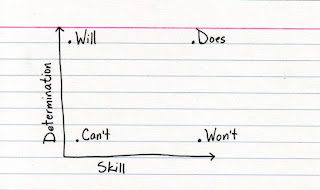 Will
Does
Determination
Can't
Won't
Skill